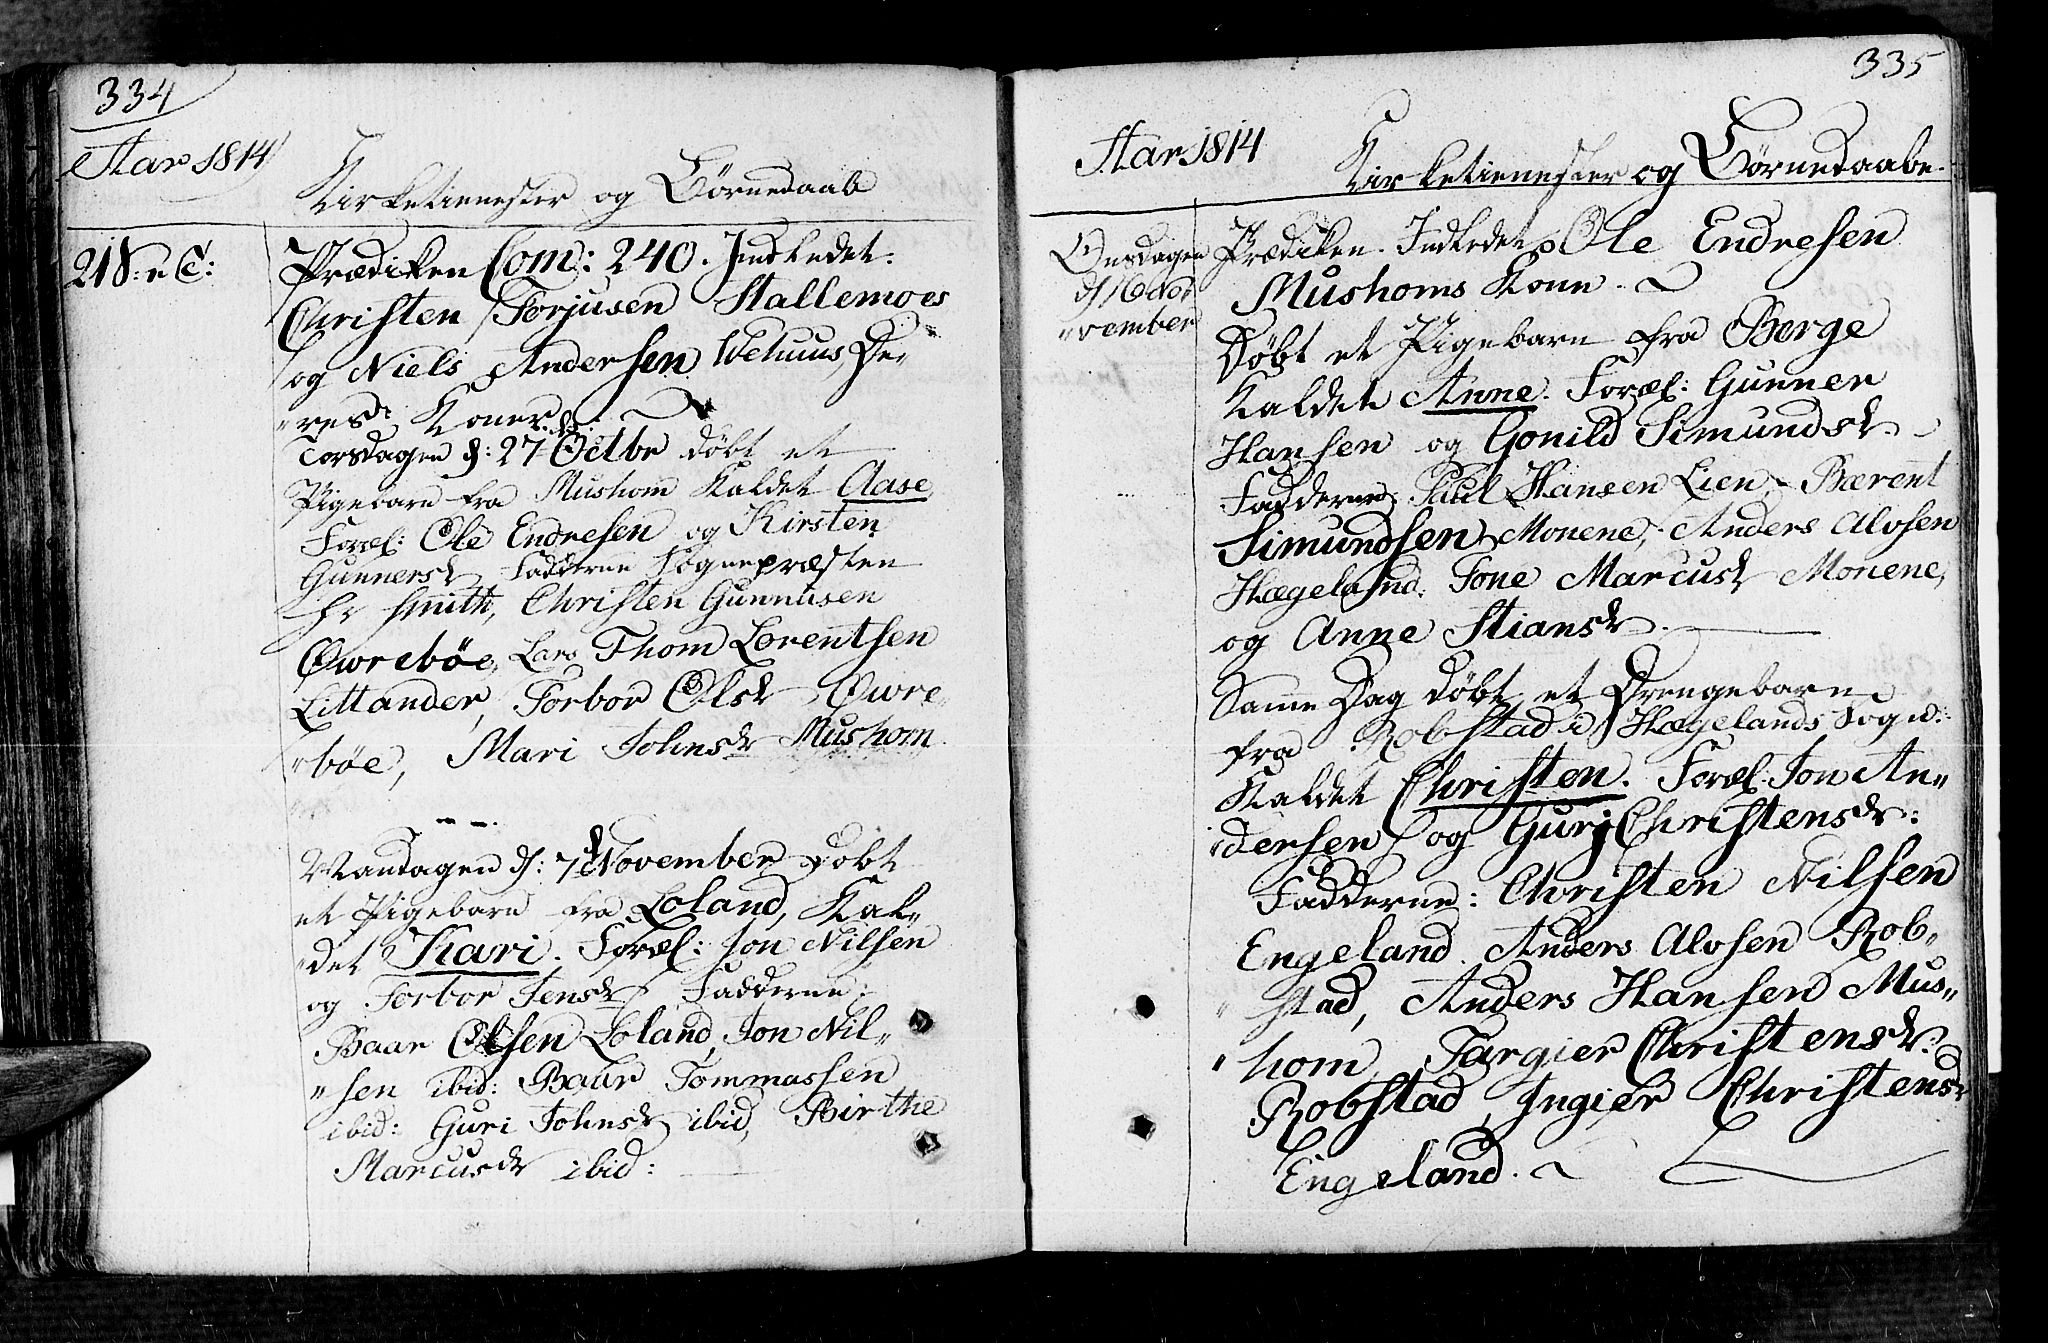 334
Aar 1814
Kirketienester og Børnedaab
21 S: e T:
Prædiken Com: 240. Indledet:
Christen Torjusen Stallemoes
og Niels Andersen De„
„res Koner.
Torsdagen d: 27 Octbr døbt et
Pigebarn fra Mushom Kaldet Aase
Foræl: Ole Endresen og Kirsten
Gunnersdr Fadderne Sognepræsten
Hr Smith, Christen Gunnusen
Øwrebøe, Lars Thom Lorentsen
Littander, Torbor Olsdr Øwre„
„bøe, Mari Johnsdr Mushom
Mandagen d: 7 November døbt
et Pigebarn fra Loland, Kal„
„det Kari. Foræl: Jon Nilsen
og Torbor Jensdr Fadderne:
Baar Olsen Loland, Jon Nil„
„sen ibid: Baar Tommassen
ibid: Guri Johnsdr ibid, Birthe
Marcusdr ibid:
335
Aar 1814
Kirketienester og Børnedaabe.
Onsdagen
d 16 No„
„vember
Prædiken. Indledet Ole Endresen
Mushoms Kone.
Døbt et Pigebarn fra Berge
Kaldet Anne. Foræl: Gunner
Hansen og Gonild Simundsdr
Fadderne: Paul Hansen Lien, Bærent
Simundsen Monene, Anders Alvsen
Hægeland. Tone Marcusdr Monene,
og Anne Stiansdr.
Samme Dag døbt et Drengebarn
fra Robstad i Hægelands Sogn:
Kaldet Christen. Foræl. Jon An„
„dersen og Guri Christensdr:
Fadderne: Christen Nilsen
Engeland. Anders Alvsen Rob„
„stad, Anders Hansen Mus„
„hom, Targier Christensdr
Robstad, Ingier Christensdr
Engeland.